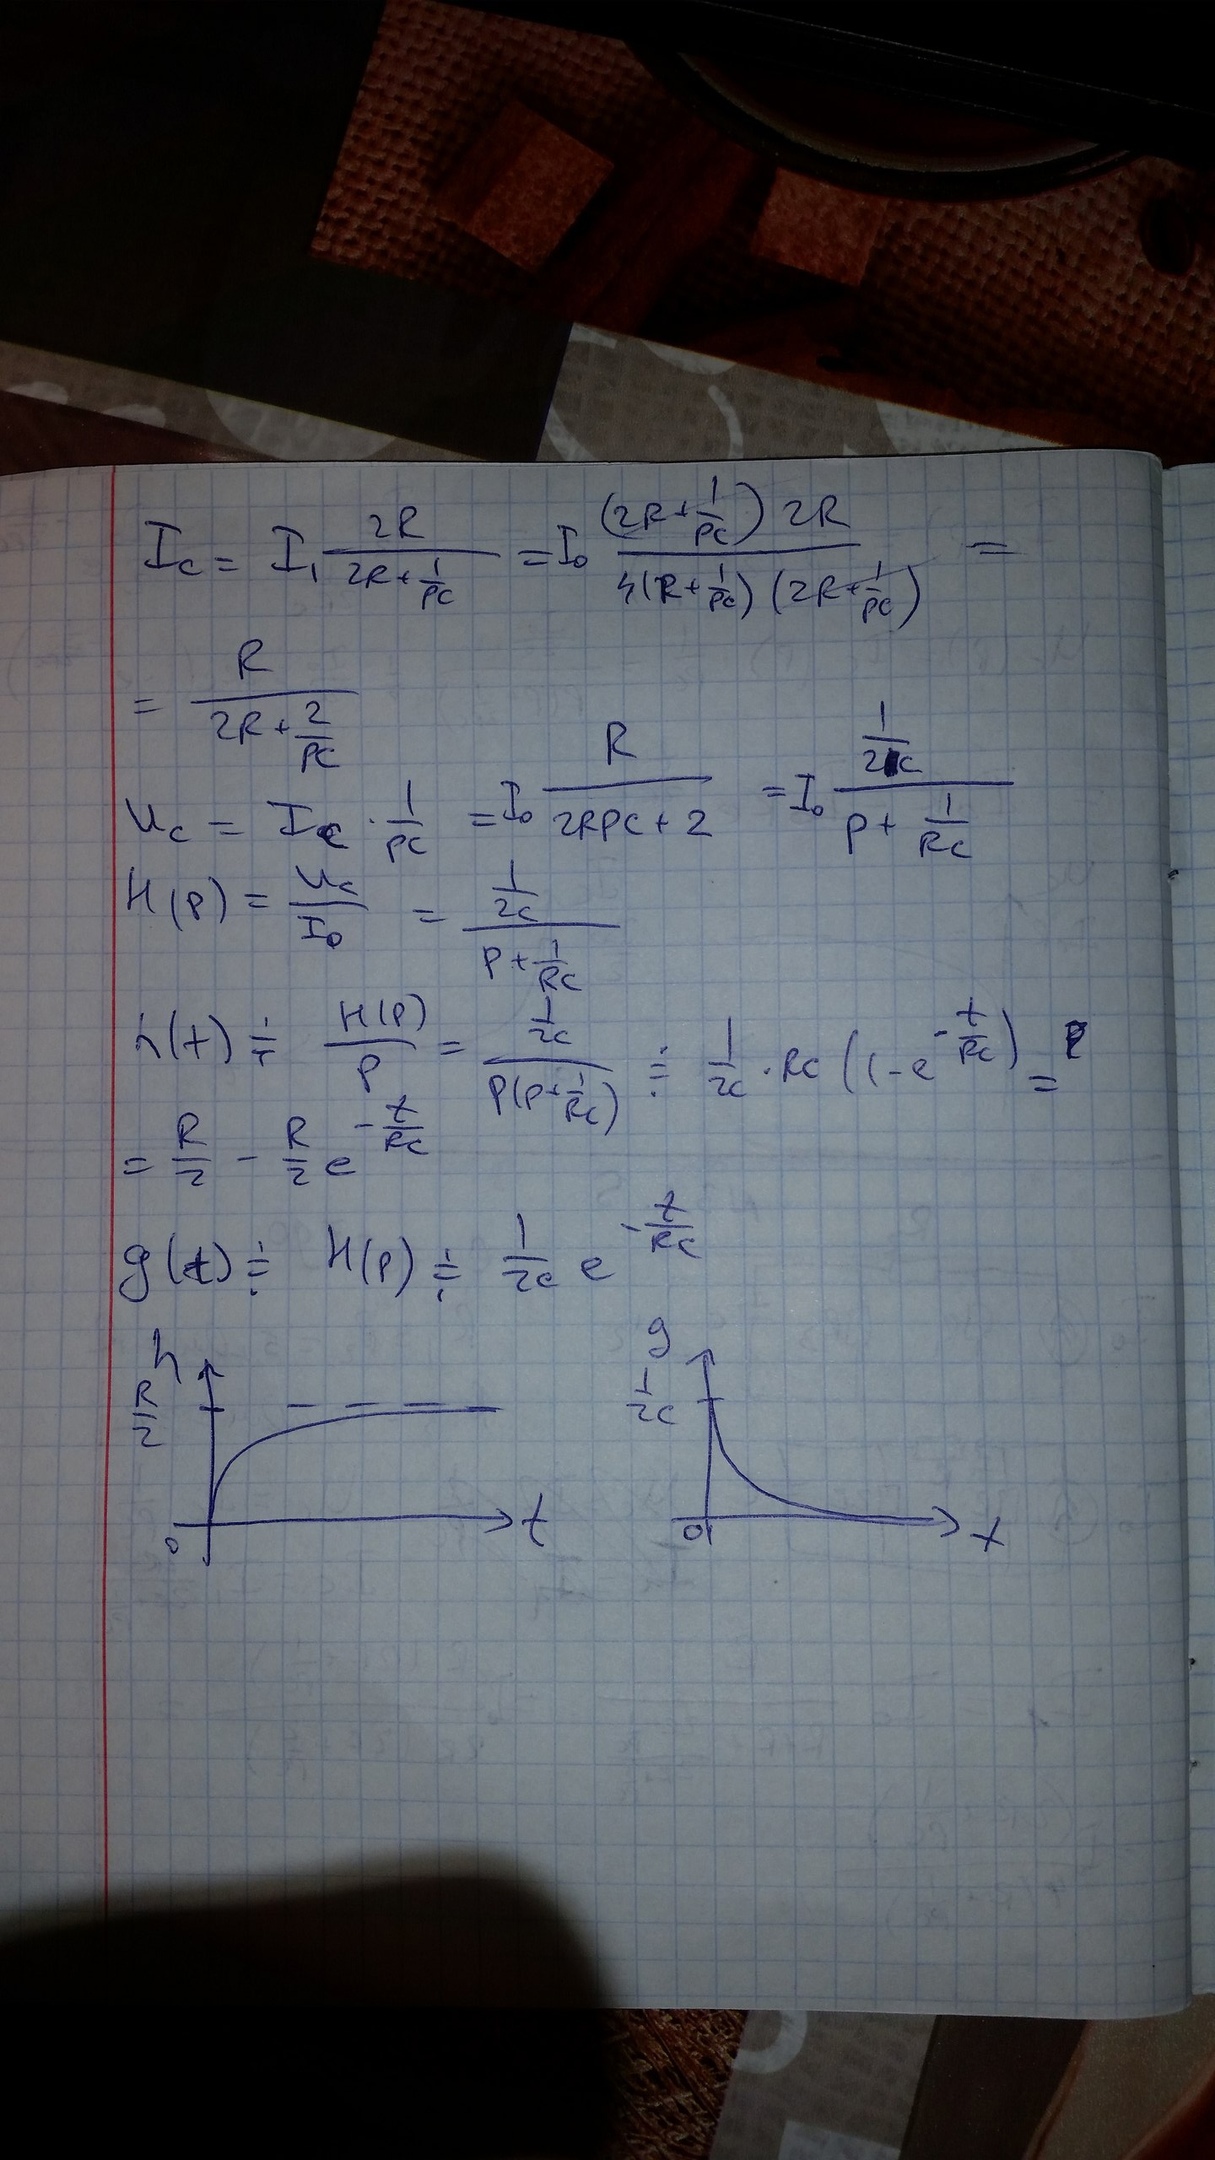 I_c = I_1 \frac{2R}{2R+\frac{1}{pC}} = I_0 \frac{(2R+\frac{1}{pC}) 2R}{4(R+\frac{1}{pC})(2R+\frac{1}{pC})} =
= \frac{R}{2R+\frac{2}{pC}}
U_c = I_c \cdot \frac{1}{pC} = I_0 \frac{R}{2RpC+2} = I_0 \frac{\frac{1}{2C}}{p+\frac{1}{RC}}
H(p) = \frac{U_c}{I_0} = \frac{\frac{1}{2C}}{p+\frac{1}{RC}}
h(t) ≑ \frac{H(p)}{p} = \frac{\frac{1}{2C}}{p(p+\frac{1}{RC})} ≑ \frac{1}{2C} \cdot RC (1-e^{-\frac{t}{RC}}) =
= \frac{R}{2} - \frac{R}{2} e^{-\frac{t}{RC}}
g(t) ≑ H(p) ≑ \frac{1}{2C} e^{-\frac{t}{RC}}
h g
\frac{R}{2} \frac{1}{2C}
0 t 0 t